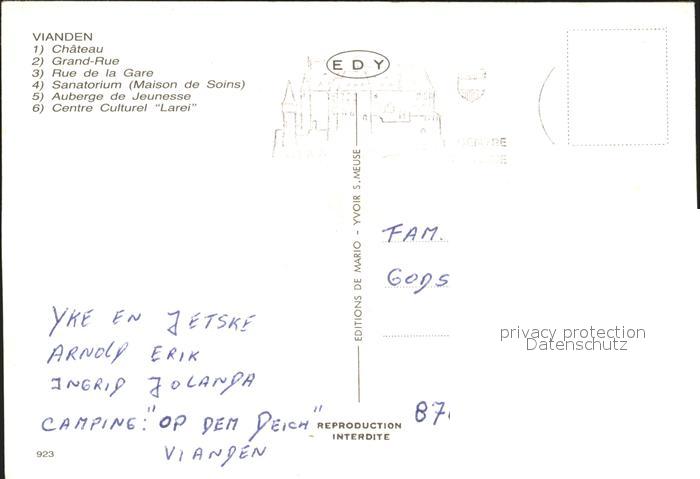 VIANDEN
1) Château
2) Grand-Rue
3) Rue de la Gare
4) Sanatorium (Maison de Soins)
5) Auberge de Jeunesse
6) Centre Culturel "Larei"
EDY
EDITIONS DE MARIO - YVOIR S.MEUSE
FAM.
GODS
privacy protection
Datenschutz
YKE EN JETSKE
ARNOLD ERIK
INGRID JOLANDA
CAMPING: "OP DEM DEICH"
VIANDEN
87
REPRODUCTION
INTERDITE
923